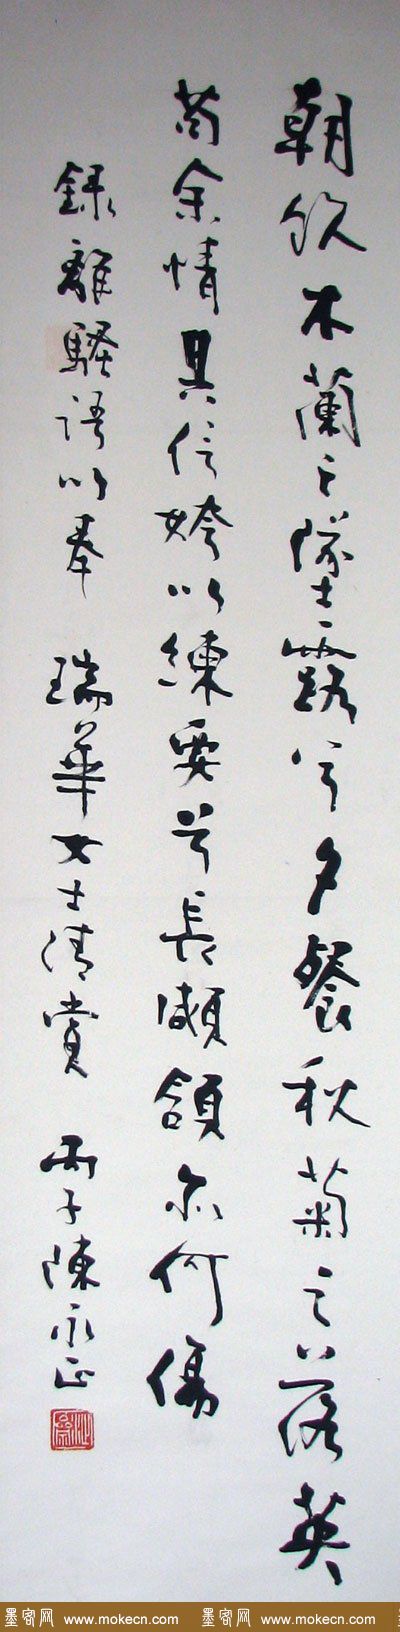 朝飲木蘭之墜露兮夕餐秋菊之落英
苟余情其信姱以練要兮長顑頷亦何傷
錄離騷語以奉 瑞華女士清賞 丙子陳永正
墨客网 www.mokecn.com 墨客网 www.mokecn.com